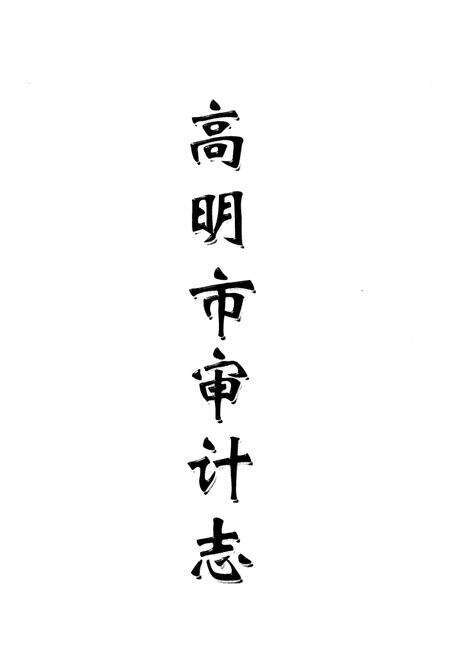 高明市审计志